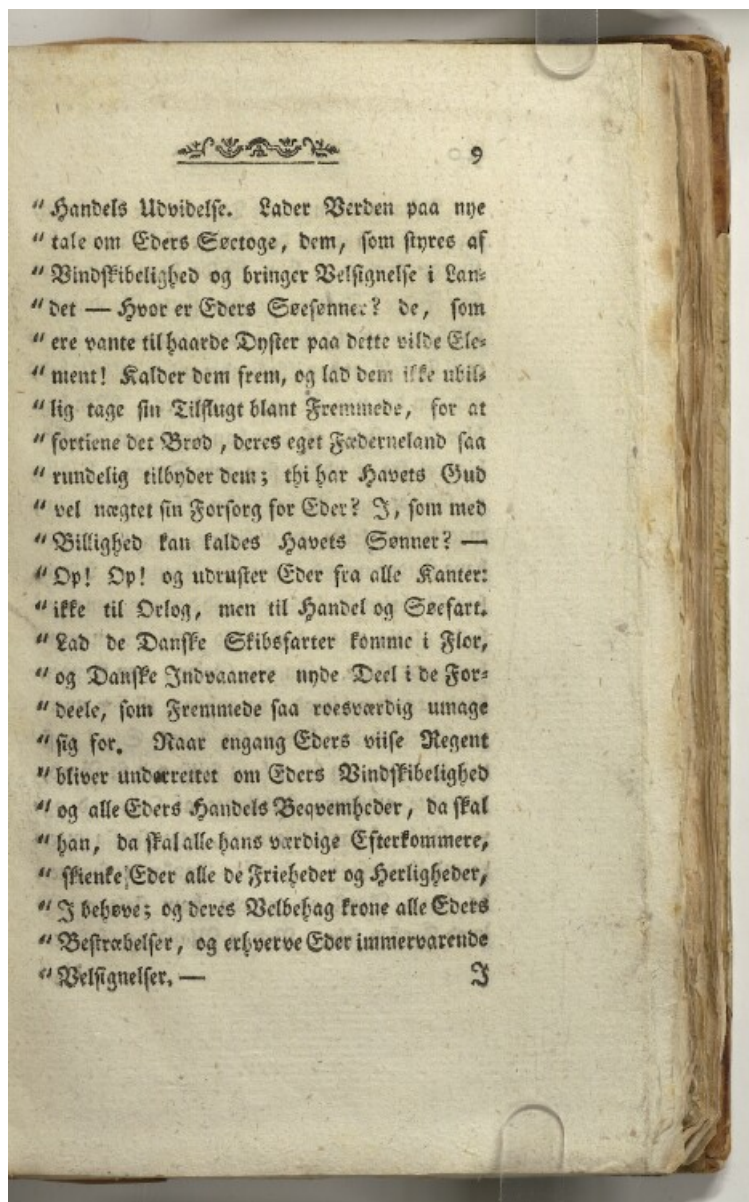 9
" Handels Udvidelse. Lader Verden paa nye
" tale om Eders Søetoge, dem, som styres af
" Vindskibelighed og bringer Velsignelse i Lan-
" det — Hvor er Eders Søesønner? de, som
" ere vante til haarde Dyster paa dette vilde Ele-
" ment! Kalder dem frem, og lad dem ikke ubil-
" lig tage sin Tilflugt blant Fremmede, for at
" fortiene det Brød, deres eget Fæderneland saa
" rundelig tilbyder dem; thi har Havets Gud
" vel nægtet sin Forsorg for Eder? I, som med
" Billighed kan kaldes Havets Sønner? —
" Op! Op! og udruster Eder fra alle Kanter:
" ikke til Orlog, men til Handel og Søefart.
" Lad de Danske Skibsfarter komme i Flor,
" og Danske Indvaanere nyde Deel i de For-
" deele, som Fremmede saa roesværdig umage
" sig for. Naar engang Eders viise Regent
" bliver underrettet om Eders Vindskibelighed
" og alle Eders Handels Beqvemheder, da skal
" han, da skal alle hans værdige Efterkommere,
" skienke Eder alle de Frieheder og Herligheder,
" I behøve; og deres Velbehag krone alle Eders
" Bestræbelser, og erhverve Eder immervarende
" Velsignelser. — I